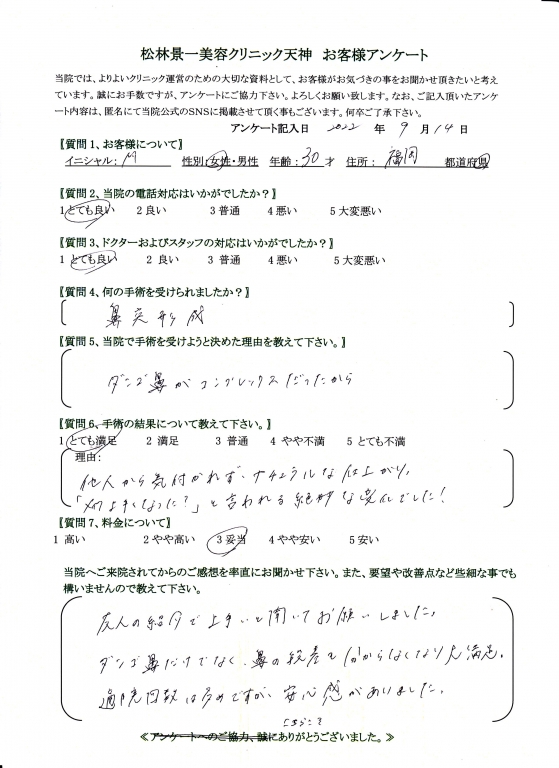 松林景一美容クリニック天神　お客様アンケート
当院では、よりよいクリニック運営のための大切な資料として、お客様がお気づきの事をお聞かせ頂きたいと考え
ています。誠にお手数ですが、アンケートにご協力下さい。よろしくお願い致します。なお、ご記入頂いたアンケ
ート内容は、匿名にて当院公式のSNSに掲載させて頂く事もございます。何卒ご了承下さい。
アンケート記入日 2022 年 9 月 14 日
【質問1、お客様について】
イニシャル： M 性別：女性・男性 年齢：30才 住所： 福岡 都道府県
【質問2、当院の電話対応はいかがでしたか？】
1 とても良い 2 良い 3 普通 4 悪い 5 大変悪い
【質問3、ドクターおよびスタッフの対応はいかがでしたか？】
1 とても良い 2 良い 3 普通 4 悪い 5 大変悪い
【質問4、何の手術を受けられましたか？】
鼻尖形成
【質問5、当院で手術を受けようと決めた理由を教えて下さい。】
ダンゴ鼻がコンプレックスだったから
【質問6、手術の結果について教えて下さい。】
1 とても満足 2 満足 3 普通 4 やや不満 5 とても不満
理由：
他人から気付かれず、ナチュラルな仕上がり。
「メイク上手くなった？」と言われる絶妙な変化でした！
【質問7、料金について】
1 高い 2 やや高い 3 妥当 4 やや安い 5 安い
当院へご来院されてからのご感想を率直にお聞かせ下さい。また、要望や改善点など些細な事でも
構いませんので教えて下さい。
友人の紹介で上手いと聞いてお願いしました。
ダンゴ鼻だけでなく、鼻の段差も分からなくなり大満足。
通院回数は多めですが、安心感がありました。
こちらこそ
≪アンケートへのご協力、誠にありがとうございました。≫